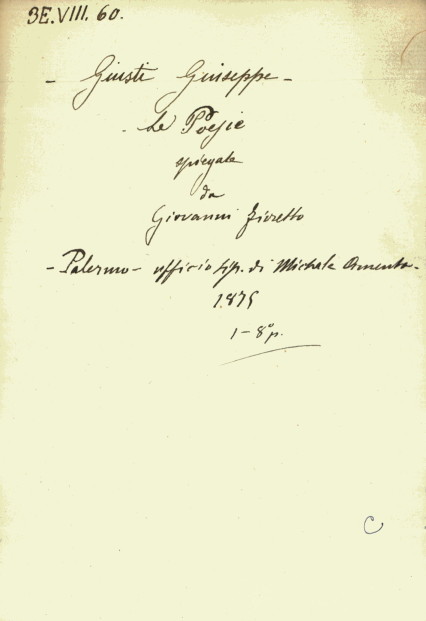 3E.VIII. 60.
- Giusti Giuseppe -
- Le Poesie
spiegate
da
Giovanni Fioretto
- Palermo - ufficio tip. di Michele Amenta -
1875
1 - 8º p.
C